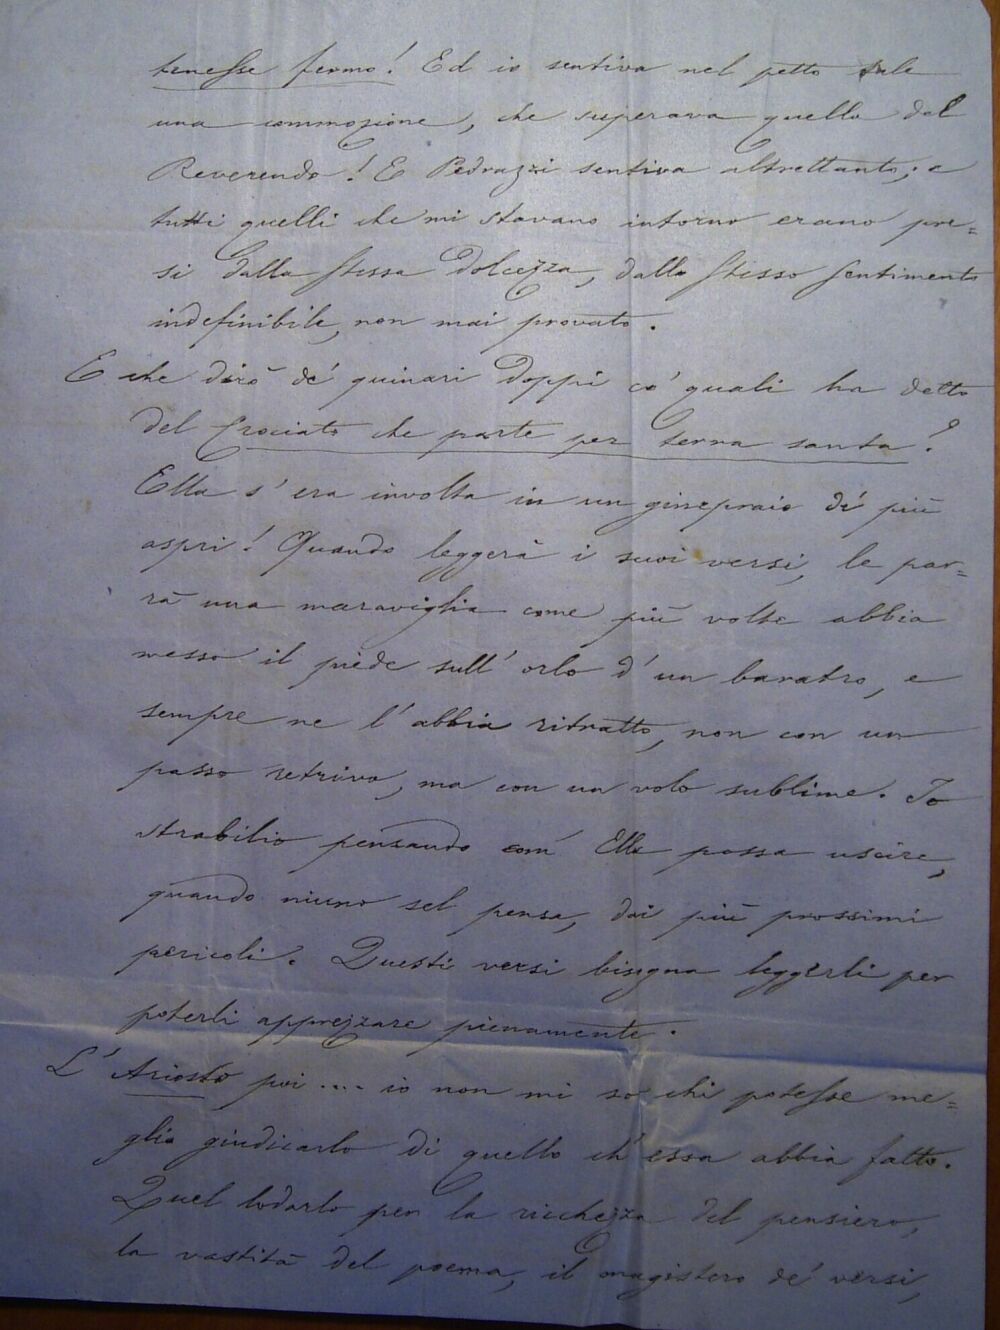 tenesse fermo! Ed io sentiva nel petto tale
una commozione, che superava quella del
Reverendo! E Pedrazzi sentiva altrettanto; e
tutti quelli che mi stavano intorno erano pre=
si dalla stessa dolcezza, dallo stesso sentimento
indefinibile, non mai provato.
E che dirò de' quinari doppi co' quali ha detto
del Crociato che parte per terra santa?
Ella s'era involta in un ginepraio de' più
aspri! Quando leggerà i suoi versi, le par=
rà una maraviglia come più volte abbia
messo il piede sull'orlo d'un baratro, e
sempre ne l'abbia ritratto, non con un
passo retrivo, ma con un volo sublime. Io
strabilio pensando com' Ella possa uscire,
quando niuno sel pensa, dai più prossimi
pericoli. Questi versi bisogna leggerli per
poterli apprezzare pienamente.
L'Ariosto poi .... io non mi so chi potesse me=
glio giudicarlo di quello ch'essa abbia fatto.
Quel lodarlo per la ricchezza del pensiero,
la vastità del poema, il magistero de' versi,